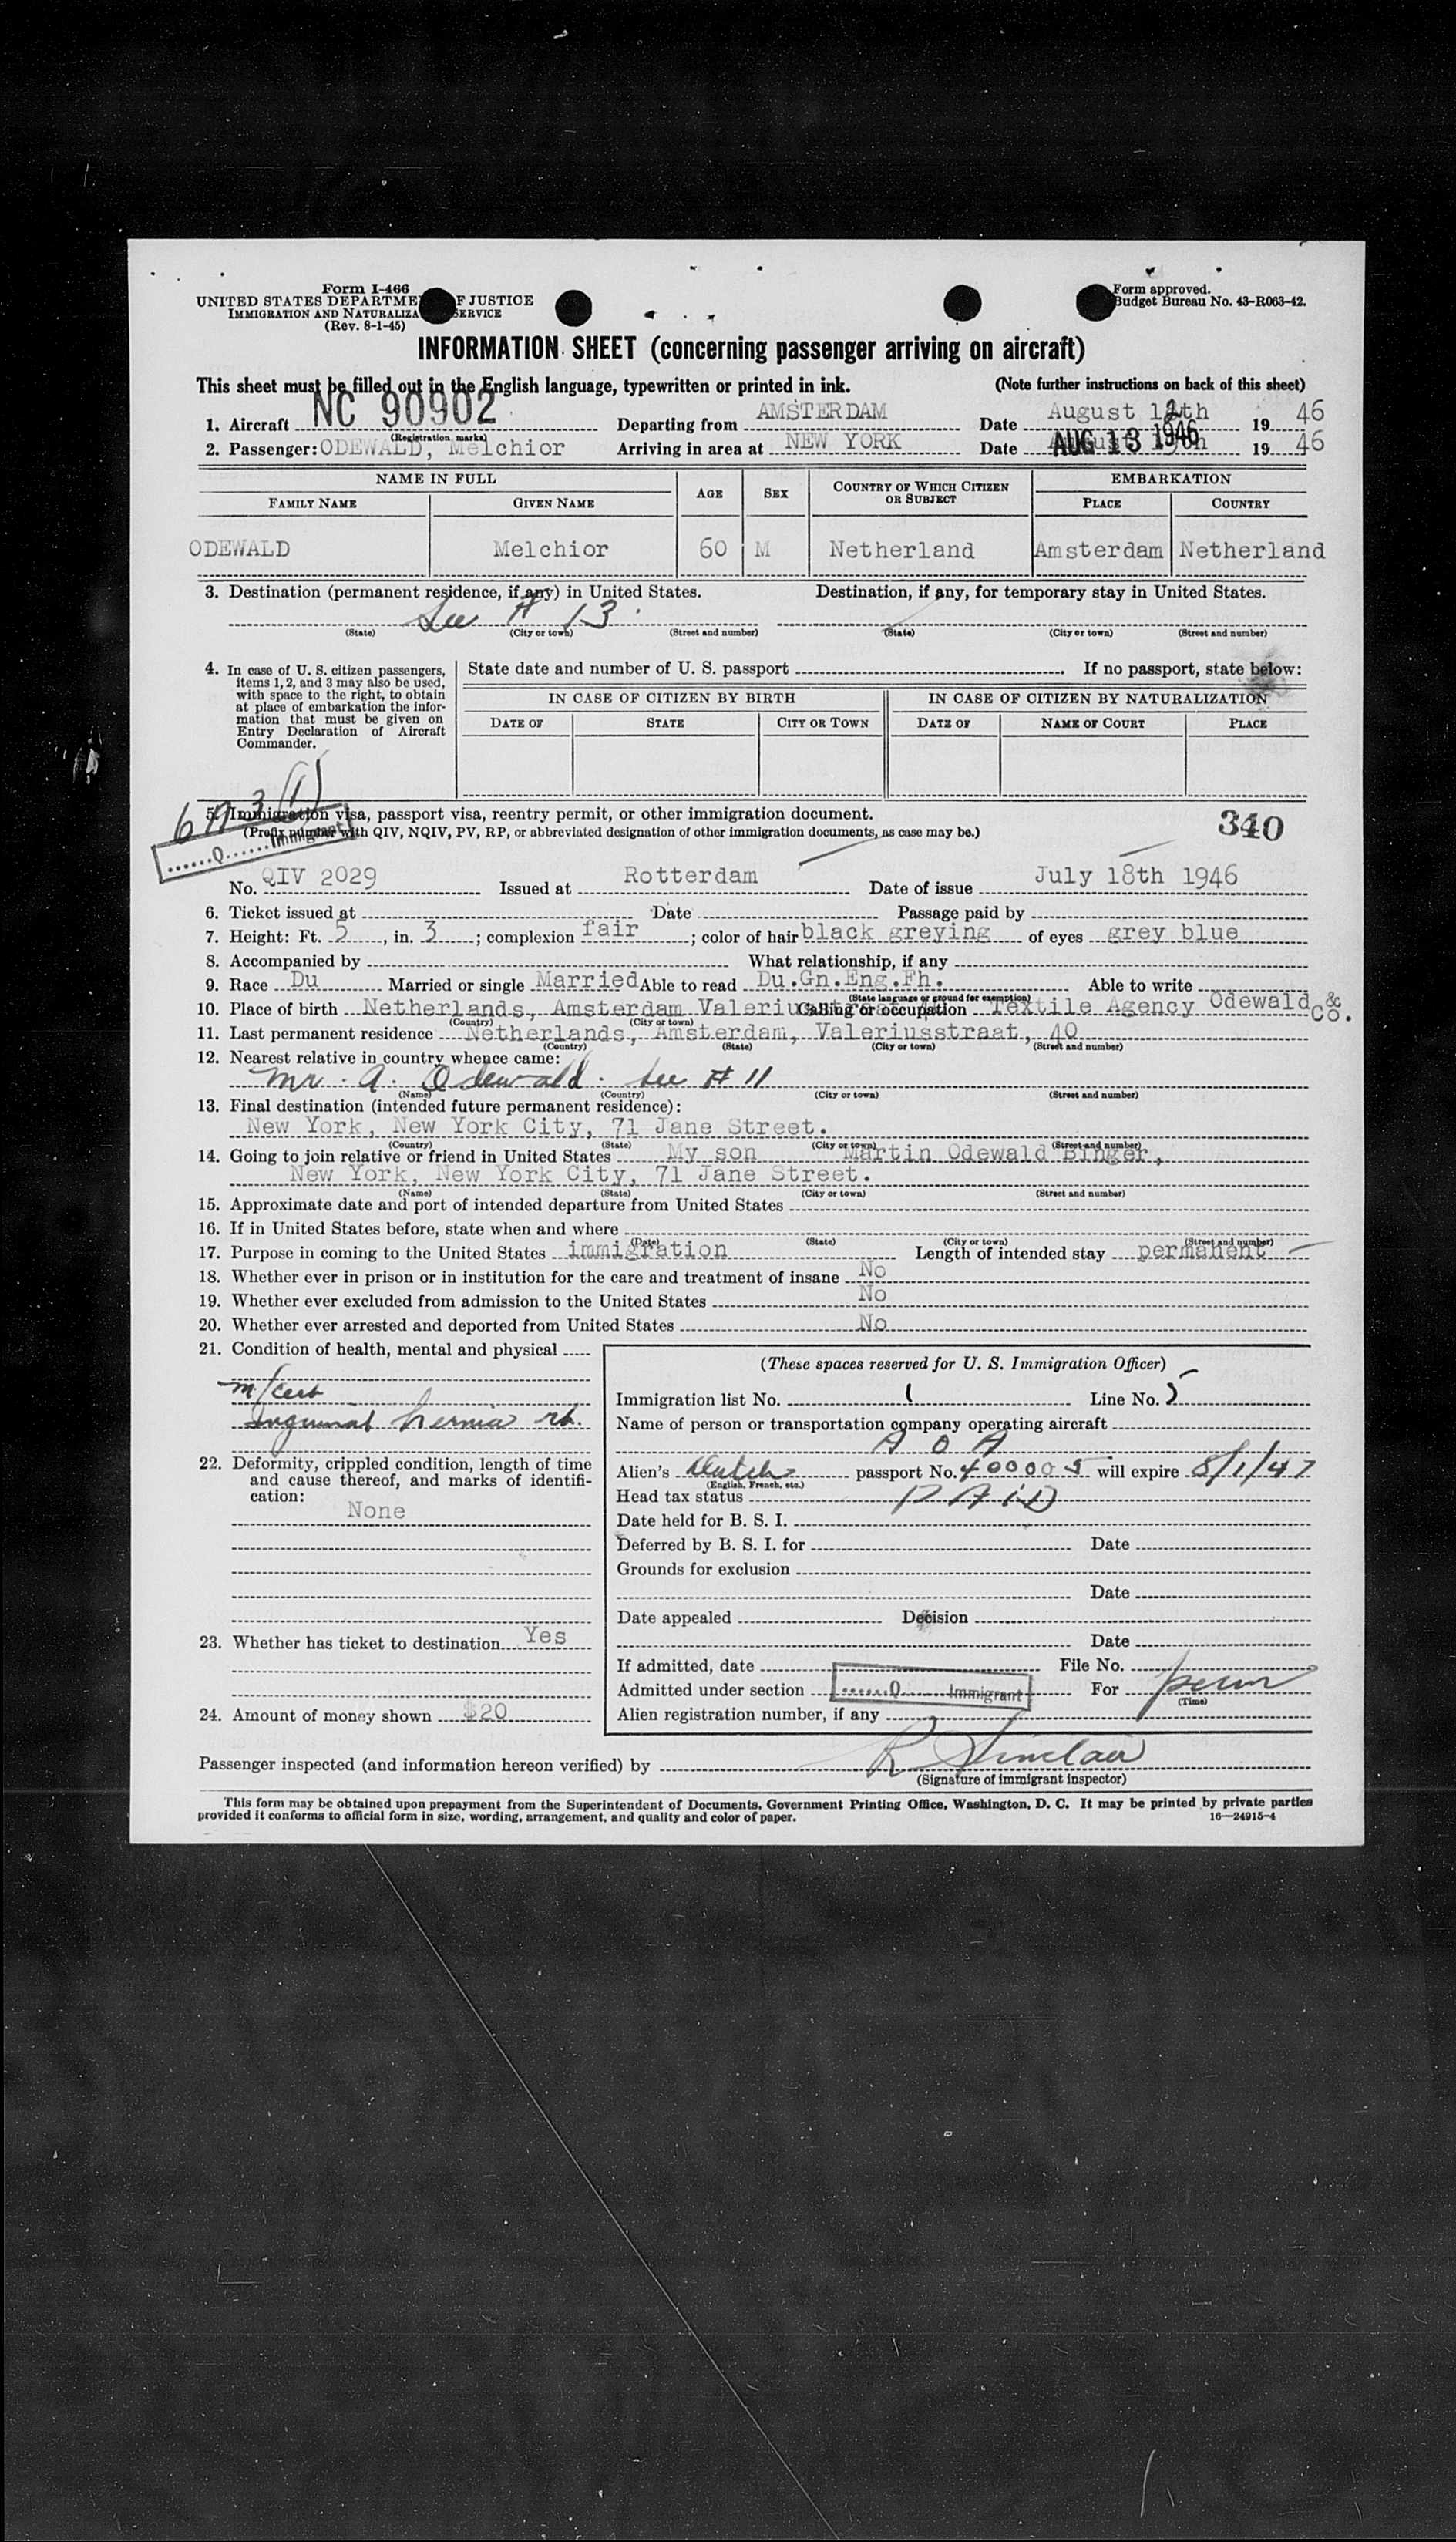 Form I-466
UNITED STATES DEPARTME F JUSTICE
IMMIGRATION AND NATURALIZA SERVICE
(Rev. 8-1-45)
Form approved.
Budget Bureau No. 43-R063-42.
INFORMATION SHEET (concerning passenger arriving on aircraft)
This sheet must be filled out in the English language, typewritten or printed in ink. (Note further instructions on back of this sheet)
1. Aircraft NC 90902 Departing from AMSTERDAM Date August 12th 19 46
(Registration marks)
2. Passenger: ODEWALD, Melchior Arriving in area at NEW YORK Date AUG 13 1946 19 46
NAME IN FULL AGE SEX COUNTRY OF WHICH CITIZEN OR SUBJECT EMBARKATION
FAMILY NAME GIVEN NAME PLACE COUNTRY
ODEWALD Melchior 60 M Netherland Amsterdam Netherland
3. Destination (permanent residence, if any) in United States. Destination, if any, for temporary stay in United States.
See # 13
(State) (City or town) (Street and number) (State) (City or town) (Street and number)
4. In case of U. S. citizen passengers, items 1, 2, and 3 may also be used, with space to the right, to obtain at place of embarkation the information that must be given on Entry Declaration of Aircraft Commander.
State date and number of U. S. passport If no passport, state below:
IN CASE OF CITIZEN BY BIRTH IN CASE OF CITIZEN BY NATURALIZATION
DATE OF STATE CITY OR TOWN DATE OF NAME OF COURT PLACE
(1)
5. Immigration visa, passport visa, reentry permit, or other immigration document. 340
(Prefix number with QIV, NQIV, PV, RP, or abbreviated designation of other immigration documents, as case may be.)
Q Immigrant
No. QIV 2029 Issued at Rotterdam Date of issue July 18th 1946
6. Ticket issued at Date Passage paid by
7. Height: Ft. 5, in. 3; complexion fair; color of hair black greying of eyes grey blue
8. Accompanied by What relationship, if any
9. Race Du Married or single Married Able to read Du.Gn.Eng.Fh. Able to write
(State language or ground for exemption)
10. Place of birth Netherlands, Amsterdam Calling or occupation Textile Agency Odewald & Co.
(Country) (City or town)
11. Last permanent residence Netherlands, Amsterdam, Valeriusstraat, 40
(Country) (State) (City or town) (Street and number)
12. Nearest relative in country whence came:
Mr. A. Odewald. See # 11
(Name) (Country) (City or town) (Street and number)
13. Final destination (intended future permanent residence):
New York, New York City, 71 Jane Street.
(Country) (State) (City or town) (Street and number)
14. Going to join relative or friend in United States My son Martin Odewald Binger,
New York, New York City, 71 Jane Street.
(Name) (State) (City or town) (Street and number)
15. Approximate date and port of intended departure from United States
16. If in United States before, state when and where
(Date) (State) (City or town) (Street and number)
17. Purpose in coming to the United States immigration Length of intended stay permanent
18. Whether ever in prison or in institution for the care and treatment of insane No
19. Whether ever excluded from admission to the United States No
20. Whether ever arrested and deported from United States No
21. Condition of health, mental and physical
m/cert
Inguinal hernia rt.
22. Deformity, crippled condition, length of time and cause thereof, and marks of identification:
None
23. Whether has ticket to destination Yes
24. Amount of money shown $20
(These spaces reserved for U. S. Immigration Officer)
Immigration list No. 1 Line No. 5
Name of person or transportation company operating aircraft
A O A
Alien's Dutch passport No. 400005 will expire 8/1/47
(English, French, etc.)
Head tax status PAID
Date held for B. S. I.
Deferred by B. S. I. for Date
Grounds for exclusion
Date
Date appealed Decision
Date
If admitted, date File No.
Admitted under section Q Immigrant For perm
(Time)
Alien registration number, if any
Passenger inspected (and information hereon verified) by R Sinclair
(Signature of immigrant inspector)
This form may be obtained upon prepayment from the Superintendent of Documents, Government Printing Office, Washington, D. C. It may be printed by private parties
provided it conforms to official form in size, wording, arrangement, and quality and color of paper. 16—24915-4